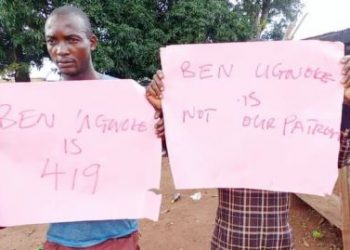 BEN UGWOKE
IS
419
BEN UGWOKE
IS
NOT OUR PATRON